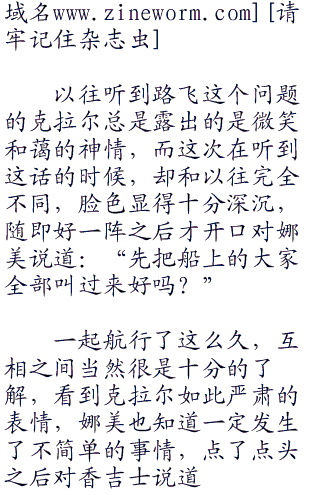 域名www.zineworm.com][请
牢记住杂志虫]
以往听到路飞这个问题
的克拉尔总是露出的是微笑
和蔼的神情，而这次在听到
这话的时候，却和以往完全
不同，脸色显得十分深沉，
随即好一阵之后才开口对娜
美说道：“先把船上的大家
全部叫过来好吗？”
一起航行了这么久，互
相之间当然很是十分的了
解，看到克拉尔如此严肃的
表情，娜美也知道一定发生
了不简单的事情，点了点头
之后对香吉士说道